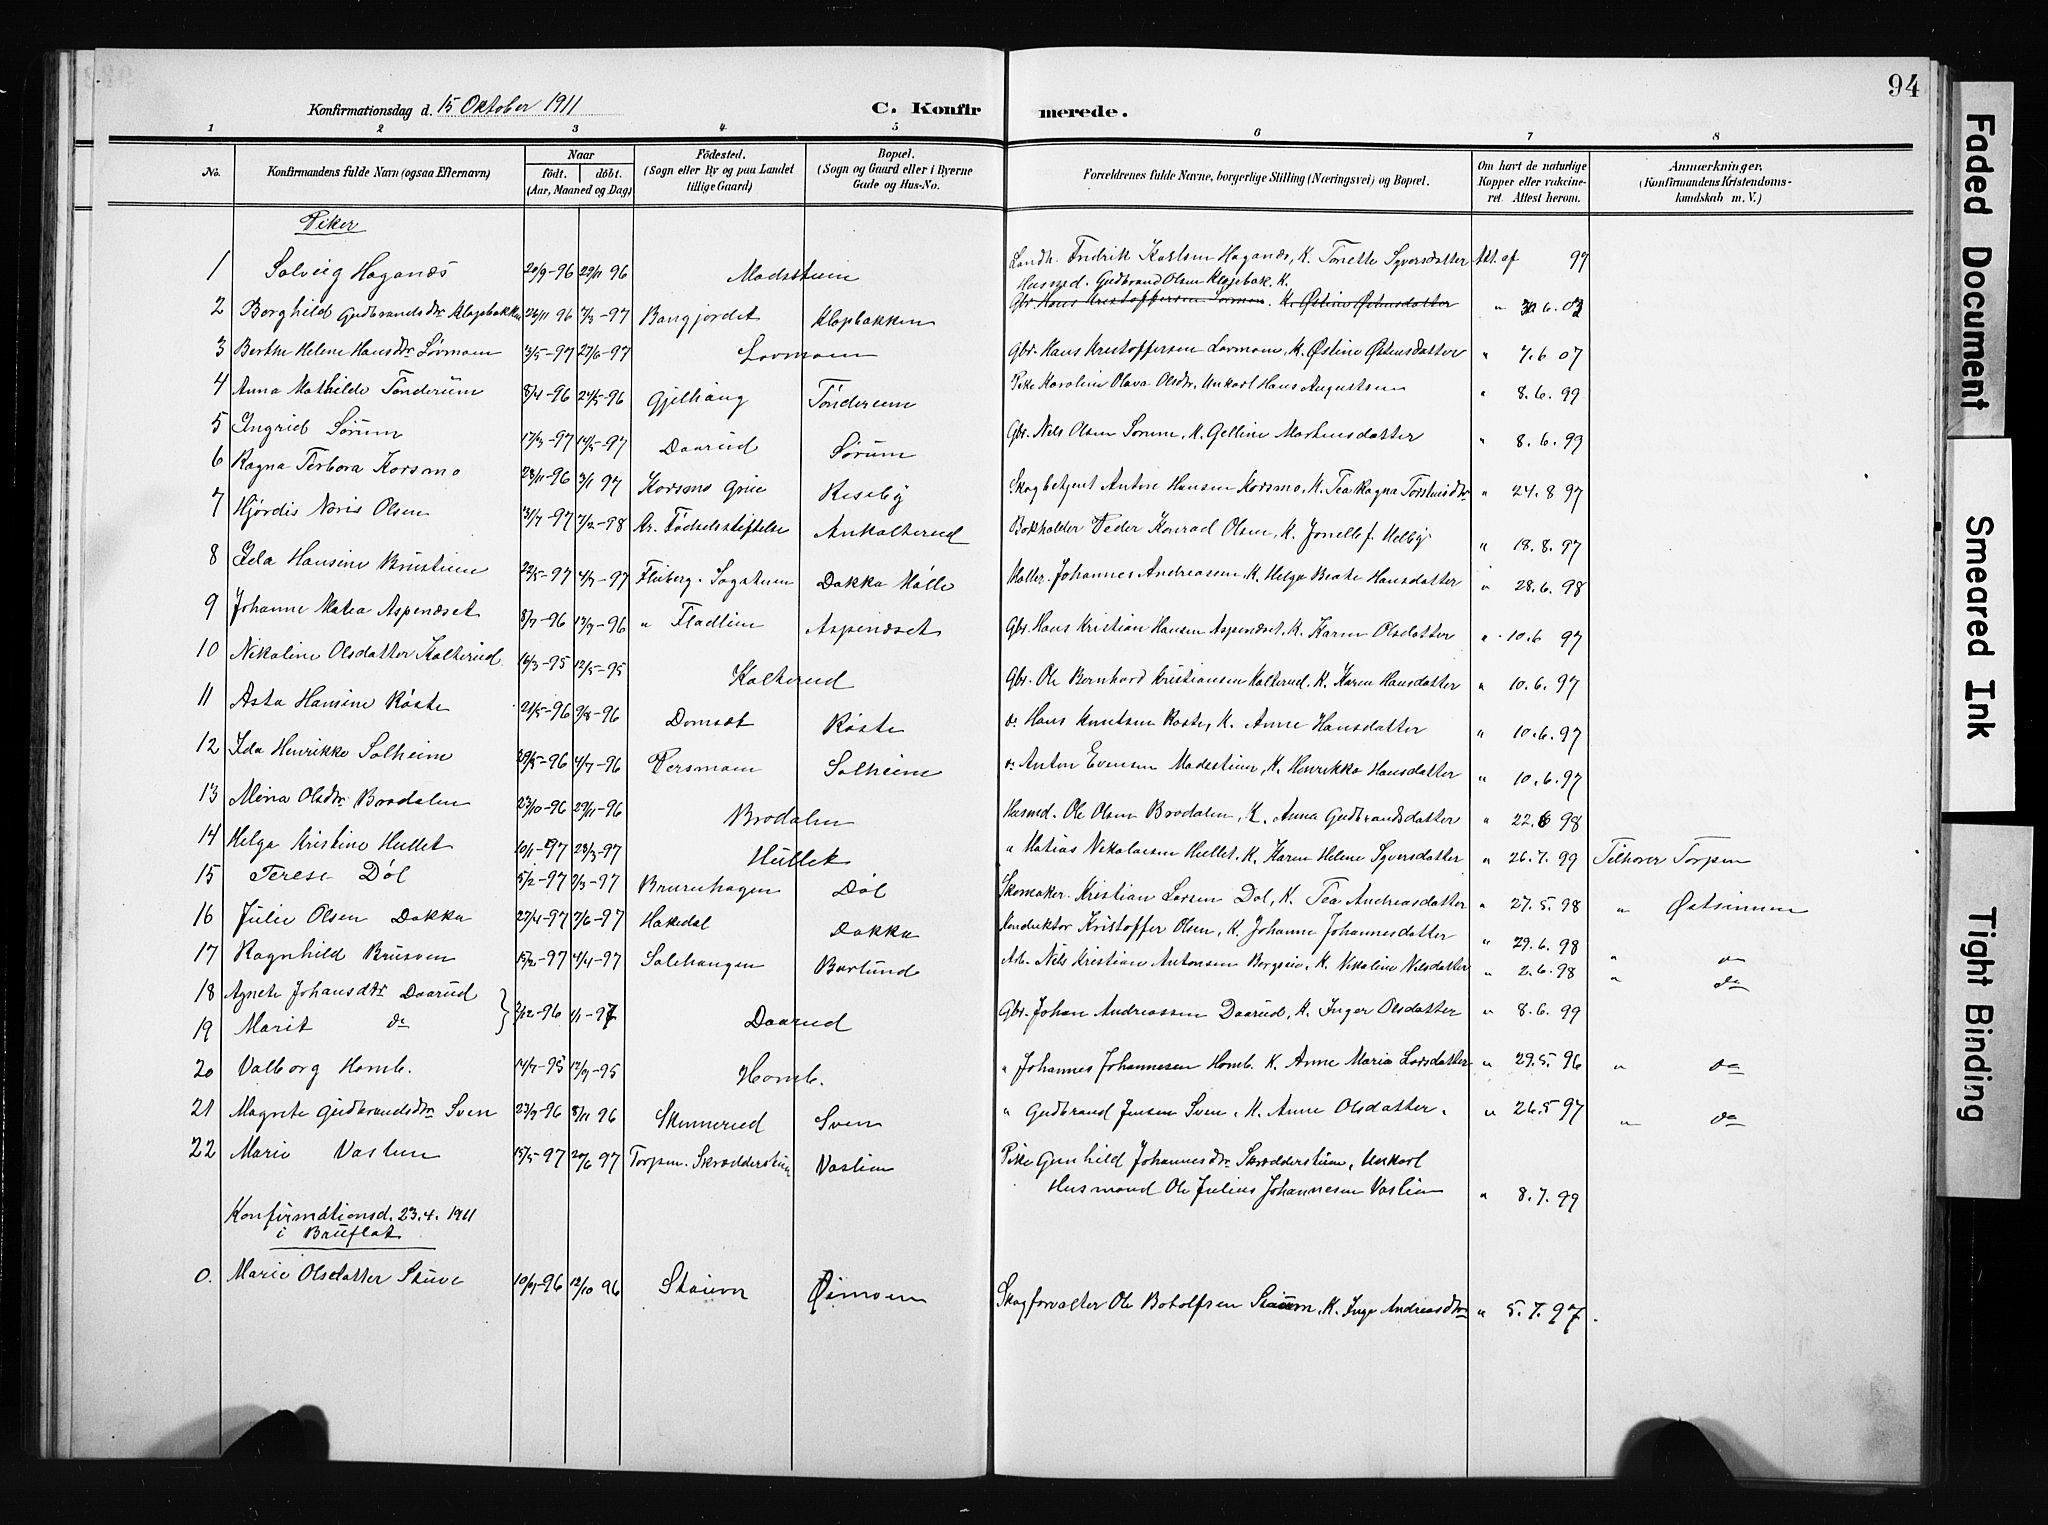 94
Konfirmationsdag d. 15 Oktober 1911
C. Konfirmerede.
1 2 3 4 5 6 7 8
No.
Konfirmandens fulde Navn (ogsaa Efternavn)
Naar
født. døbt.
(Aar, Maaned og Dag)
Fødested.
(Sogn eller By og paa Landet
tillige Gaard)
Bopæl.
(Sogn og Gaard eller i Byerne
Gade og Hus-No.
Forældrenes fulde Navne, borgerlige Stilling (Næringsvei) og Bopæl.
Om havt de naturlige
Kopper eller vakcine-
ret. Attest herom.
Anmærkninger,
(Konfirmandens Kristendoms-
kundskab m. V.)
Piker
1 Solveig Haganæs 20/9-96 29/11 96 Madsstuen Landh. Fredrik Karlsen Haganæs, K. Tonette Syversdatter Att. af 99
Husmd. Gudbrand Olsen Klopbak. K.
2 Borghild Gudbrandsdr. Klopbakken 26/11 96 7/3-97 Bangjordet Klopbakken Gbr. Hans Kristoffersen Lovmoen. K. Østine Østensdatter " 30.6.02
3 Berthe Helene Hansdr. Lovmoen 3/5-97 27/6-97 Lovmoen Gbr. Hans Kristoffersen Lovmoen, K. Østine Østensdatter " 7.6 07
4 Anna Mathilde Tønderum 8/4-96 24/5-96 Gjelhaug Tønderum Pike Karoline Olava Olsdr., Unkarl Hans Augustsen " 8.6.99
5 Ingrid Sørum 17/3-97 14/5-97 Daarud Sørum Gbr. Nels Olsen Sorum, K. Gelline Martensdatter " 8.6.99
6 Ragna Terbora Korsmo 28/11-96 3/1 97 Korsmo Grue Reseby Skogbetjent Anton Hansen Korsmo, K. Tea Ragna Torstensdr. " 24.8 97
7 Hjørdis Noris Olsen 13/7-97 7/2-98 Kr. Fødselsstiftelse Ankolterud Bokholder Peder Konrad Olsen, K. Jonelle f. Melby " 18.8.97
8 Ida Hansine Brustuen 22/5-97 4/7-97 Fluberg. Sagstuen Dokka Mølle Møller. Johannes Andreasen, K. Helga Beate Hansdatter " 28.6.98
9 Johanne Matea Aspenæset 8/7-96 13/9-96 " Fladlien Aspenæset Gbr. Hans Kristian Hansen Aspenæset, K. Karen Olsdatter " 10.6 97
10 Nikoline Olsdatter Kolterud 16/3-95 12/5-95 Kolterud Gbr. Ole Bernhard Kristiansen Kolterud. K. Karen Hansdatter " 10.6.97
11 Asta Hansine Røste 21/5-96 9/8-96 Domsæt Røste do. Hans Knutsen Røste, K. Anne Hansdatter " 10.6.97
12 Ida Henrikke Solheim 29/5-96 4/7-96 Persmoen Solheim do. Anton Evensen Madsstuen, K. Henrikke Hansdatter " 10.6.97
13 Mina Olsdr. Brodalen 23/10-96 29/11-96 Brodalen Husmd. Ole Olsen Brodalen, K. Anna Gudbrandsdatter " 22.6 98
14 Helga Kristine Hullet 10/1-97 28/3-97 Hullet " Matias Nikolaisen Hullet, K. Karen Helene Syversdatter " 26.7.99 Tilhører Torpen
15 Terese Døl 5/2-97 9/3-97 Bruunhagen Døl Skomaker. Kristian Larsen Døl, K. Tea Andreasdatter " 27.5.98 " Østsinnen
16 Julie Olsen Dokka 27/4-97 7/6-97 Hakedal Dokka Konduktør Kristoffer Olsen, K. Johanne Johannesdatter " 29.6.98 " do
17 Ragnhild Brusven 15/2-97 4/4-97 Solhaugen Barlund Arb. Nils Kristian Antonsen Borgseie, K. Nikoline Nilsdatter " 2.6.98 " do
18 Agnete Johansdr. Daarud
19 Marit do } 2/12-96 1/1-97 Daarud Gbr. Johan Andreassen Daarud, K. Inger Olsdatter " 8.6.99
20 Valborg Homb. 14/7-95 12/9-95 Homb. " Johannes Johannesen Homb. K. Anne Marie Larsdatter " 29.5.96 " do
21 Magnete Gudbrandsdr. Sven 23/9-96 8/11 96 Skinnerud Sven " Gudbrand Jensen Sven, K. Anne Olsdatter. " 26.5 97 " do
22 Marie Vaslien 15/5-97 27/6 97 Torpen. Skrædderstuen Vaslien Pike Gunhild Johannesdr. Skrædderstuen, Unkarl
Husmand Ole Julius Johannesen Vaslien " 8.7.99
Konfirmationsd. 23.4.1911
i Bruflat
0. Marie Olsdatter Stuve 10/9-96 12/10 96 Staven Øimoen Skogforvalter Ole Botolfsen Staven, K. Inga Andreasdtr. " 5.7.97.
Faded Document
Smeared Ink
Tight Binding